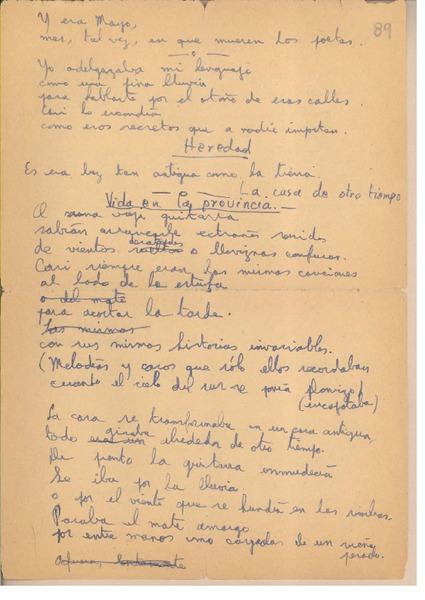 89
Y era Mayo,
mes, tal vez, en que mueren los poetas.
Yo adelgazaba mi lenguaje
como una fina lluvia
para hablarte por el otoño de esas calles.
Casi lo escondía
como esos secretos que a nadie importan.
Heredad
Es esa luz tan antigua como la tierra.
La casa de otro tiempo
Vida en la provincia.—
A una vieja guitarra
sabían arrancarle extraños sonidos
desatados
de vientos o lloviznas confusas.
Casi siempre eran las mismas canciones
al lado de la estufa
o del mate
para acortar la tarde.
Las mismas
con sus mismas historias invariables.
(Melodías y casos que sólo ellos recordaban
cuando el cielo del sur se ponía plomizo)
(encapotaba)
La casa se transformaba en una casa antigua.
giraba
todo alrededor de otro tiempo.
De pronto la guitarra enmudecía
Se iba por la lluvia
o por el viento que se hundía en las sombras.
Pasaba el mate amargo
por entre manos como cargadas de un sueño
pesado.
Afuera, lentamente